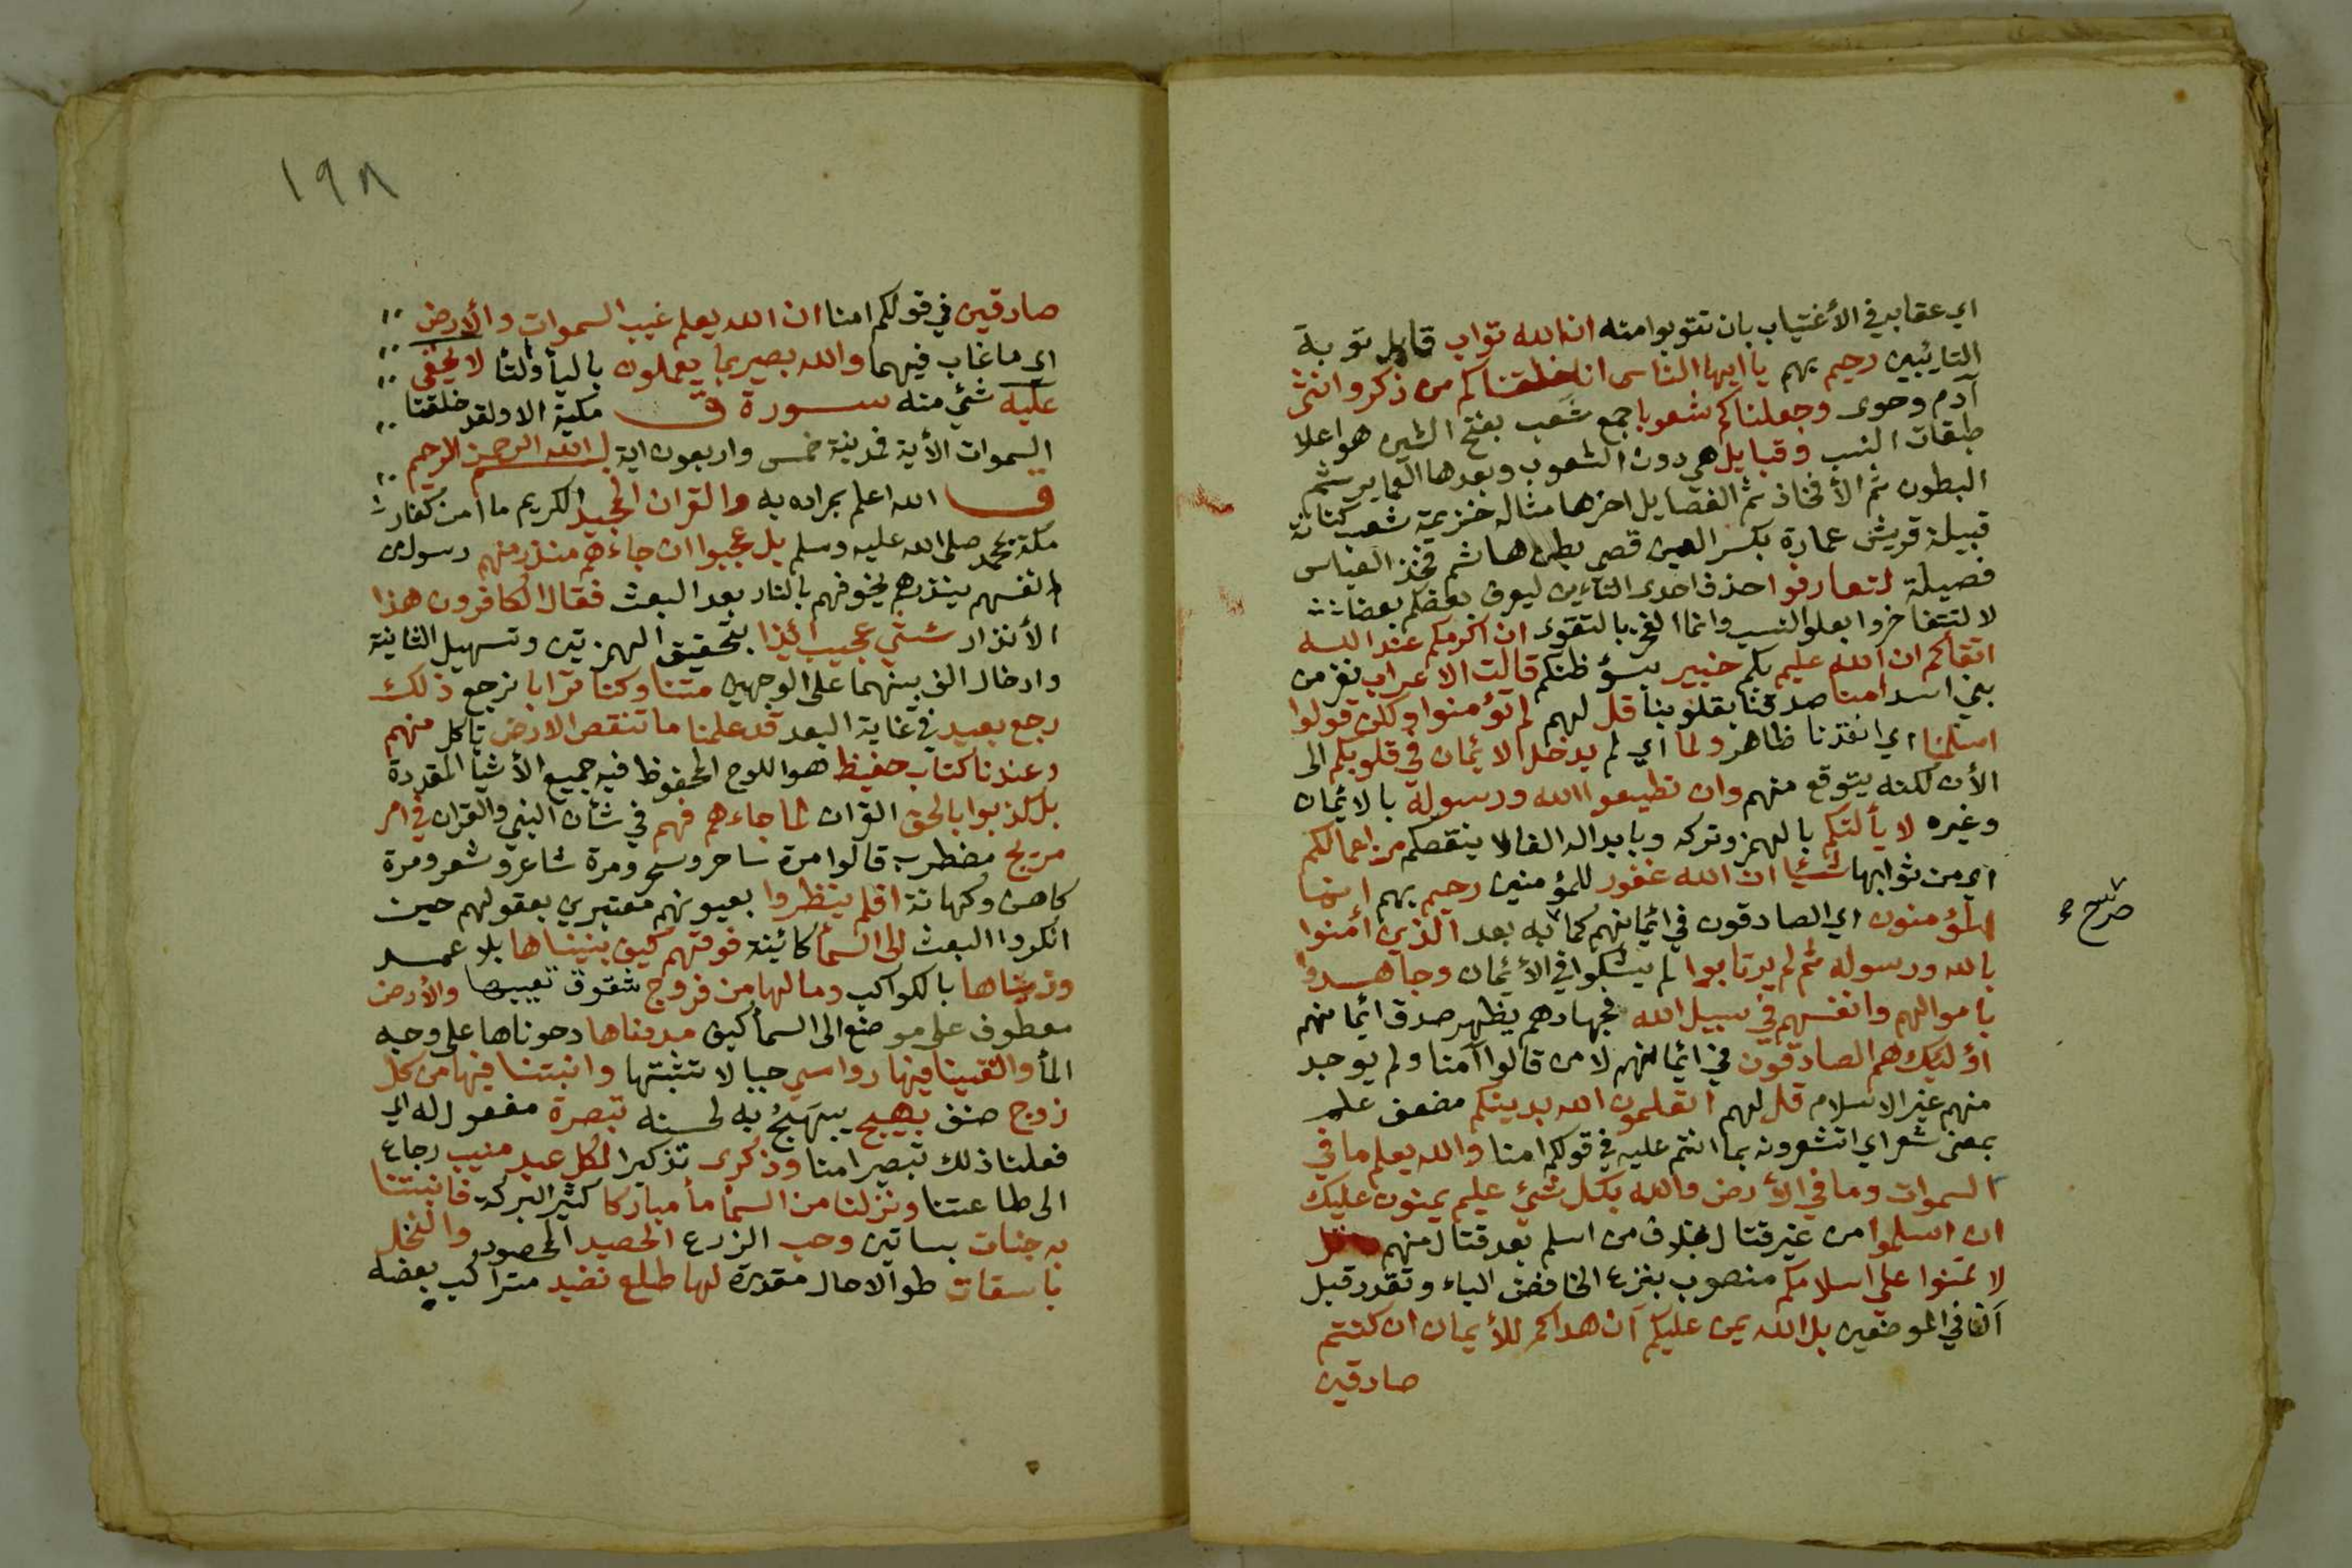 اي عقابه في الأغتياب بان تتوبوا منه ان الله تواب قابل توبة
التايبين رحيم بهم يا ايها الناس انا خلقناكم من ذكر وانثى
آدم وحوى وجعلناكم شعوبا جمع شَعب بفتح الشين هو اعلا
طبقات النسب وقبايل هي دون الشعوب وبعدها العماير ثم
البطون ثم الأفخاذ ثم الفصايل اخرها مثاله خزيمة شعب كنانة
قبيلة قريش عمارة بكسر العين قصي بطن هاشم فخذ العباس
فصيلة لتعارفوا احذف احدى التاءين ليعرف بعضكم بعضا
لا لتتفاخروا بعلو النسب وانما الفخر بالتقوى ان اكرمكم عند الله
اتقاكم ان الله عليم بكم خبير بسؤ ظنكم قالت الاعراب نفر من
بني اسد امنا صدقنا بقلوبنا قل لهم لم تؤمنوا ولكن قولوا
اسلمنا اي انقدنا ظاهر ولما اي لم يدخل الائيمان في قلوبكم الى
الأن لكنه يتوقع منهم وان تطيعوا الله ورسوله بالائيمان
وغيره لا يألتكم بالهمز وتركه وبابداله الفا لا ينقصكم من اعمالكم
اي من ثوابها شئيا ان الله غفور للمؤمنين رحيم بهم انما
المؤمنون اي الصادقون في ائيمانهم كما به بعد الذين أمنوا
صرح
بالله ورسوله ثم لم يرتابوا لم يشكوا في الأئيمان وجاهدوا
باموالهم وانفسهم في سبيل الله فجهادهم يظهر صدق ائيمانهم
اؤليك هم الصادقون في ائيمانهم لا من قالوا آمنا ولم يوجد
منهم غير الاسلام قل لهم اتعلمون الله بدينكم مضعف علم
بمعنى شعر اي اتشعرونه بما انتم عليه في قولكم امنا والله يعلم ما في
السموات وما في الأرض والله بكل شئي عليم يمنون عليك
ان اسلموا من غير قتال بخلاف من اسلم بعد قتال منهم قل
لا تمنوا على اسلامكم منصوب بنزع الخافض الباء وتقدر قبل
آن في الموضعين بل الله يمن عليكم آن هداكم للأيمان ان كنتم
صادقين
١٩٨
صادقين في قولكم امنا ان الله يعلم غيب السموات والأرض
اي ما غاب فيهما والله بصير بما يعملون باليأ والتأ لا يخفى
عليه شئي منه ســورة ق مكية الا ولقد خلقنا
السموات الأية فمدنية خمس واربعون اية بسم الله الرحمن الرحيم
ق الله اعلم بمراده به والقران المجيد الكريم ما امن كفار
مكة بمحمد صلى الله عليه وسلم بل عجبوا ان جاءهم منذر منهم رسول من
انفسهم ينذرهم يخوفهم بالنار بعد البعث فقال الكافرون هذا
الأنذار شئي عجيب ائيذا بتحقيق الهمزتين وتسهيل الثانية
وادخال الف بينهما على الوجهين متنا وكنا ترابا نرجع ذلك
رجع بعيد في غاية البعد قد علمنا ما تنقص الارض تاكل منهم
وعندنا كتاب حفيظ هو اللوح المحفوظ فيه جميع الأشيأ المقدرة
بل كذبوا بالحق القران لما جاءهم فهم في شأن النبي والقران في امر
مريج مضطرب قالوا مرة ساحر وسحر ومرة شاعر وشعر ومرة
كاهن وكهانة افلم ينظروا بعيونهم معتبرين بعقولهم حين
انكروا البعث الى السمأ كائينة فوقهم كيف بنيناها بلا عمد
وزيناها بالكواكب وما لها من فروج شقوق تعيبها والأرض
معطوف على موضع الى السمأ كيف مددناها دحوناها على وجه
المأ والقينا فيها رواسي جبالا تثبتها وانبتنا فيها من كل
زوج صنف بهيج يبهج به لحسنه تبصرة مفعول له اي
فعلنا ذلك تبصيرا منا وذكرى تذكيرا لكل عبد منيب رجاع
الى طاعتنا ونزلنا من السمأ مأ مباركا كثير البركة فانبتنا
به جنات بساتين وحب الزرع الحصيد المحصود والنخل
باسقات طوالا حال مقدرة لها طلع نضيد متراكب بعضه